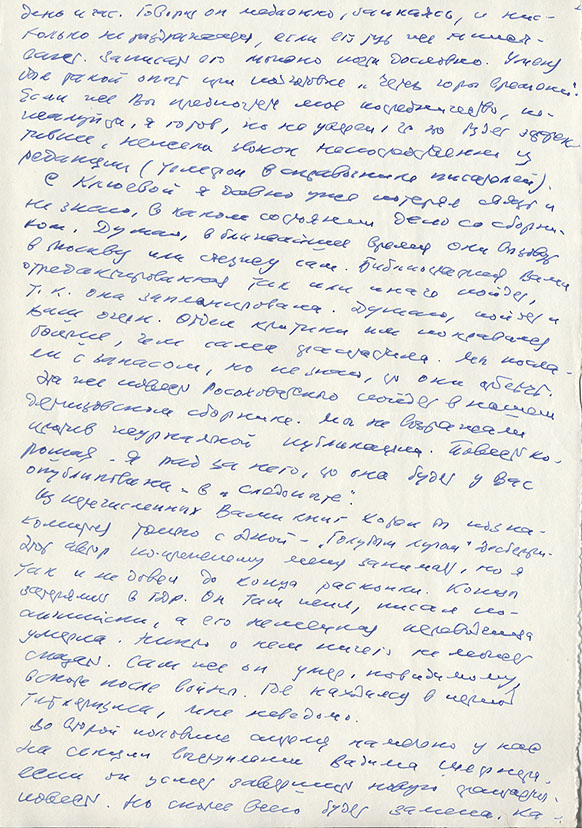 день и час. Говорит он медленно, заикаясь, и нис-
колько не раздражается, если его речь не
Записать его можно почти дословно. У меня
был такой опыт при подготовке „Через горы времени".
Если же Вы предпочтете мое посредничество, по-
жалуйста, я готов, но не уверен, что это будет эффек-
тивнее, нежели звонок непосредственно из
редакции (телефон в справочнике писателей).
С Клюевой я давно уже потерял связь и
не знаю, в каком состоянии дело со сборни-
ком. Думаю, в ближайшее время они вызовут
в Москву или съезжу сам. Библиография Вами
отредактированная так или иначе пойдет,
т.к. она запланирована. Думаю, пойдет и
Ваш очерк. Отдел критики им понравился
больше, чем сама фантастика. Мы посла-
ли с запасом, но не знаю, что они отберут.
Эта же повесть Росоховатского пойдет в нашем
сборнике. Мы не возражали
против журнальной публикации. Повесть хо-
рошая. Я рад за него, что она будет у Вас
опубликована в „Следопыте".
Из перечисленных Вами книг Коган был позна-
комился только с одной – „Голубым лучом"
Этот автор по-прежнему меня занимал, но я
так и не довел до конца раскопки. Концы
затерялись в ГДР. Он там жил, писал по-
английски, а его немецкая переводчица
умерла. Никто о нем ничего не может
сказать. Сам же он умер, по-видимому,
вскоре после войны. Где находился в период
гитлеризма, мне неведомо.
Во второй половине апреля намечено у нас
на секции выступление Вадима
если он успеет завершить новую фантастич.
повесть. Но скорее всего будет замена. На-